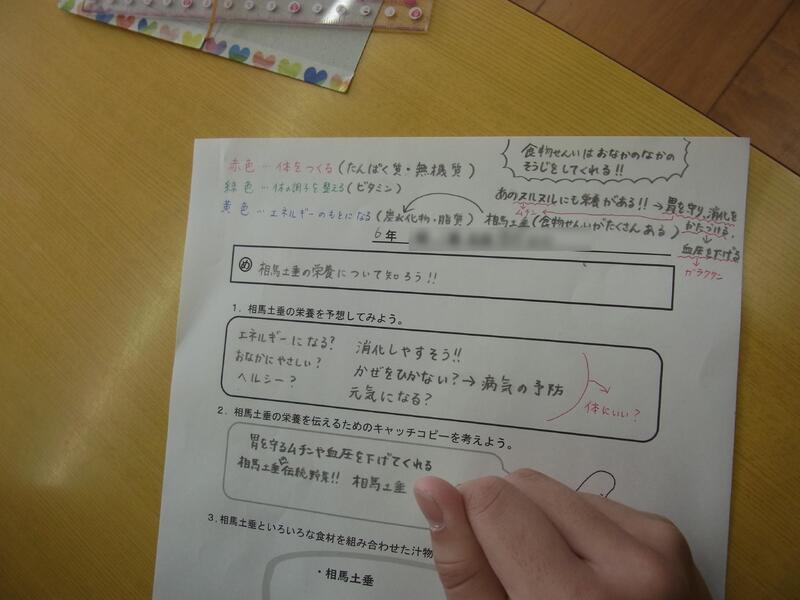 食物せんいはおなかのなかの
そうじをしてくれる!!
赤色…体をつくる(たんぱく質・無機質)
緑色…体の調子を整える(ビタミン)
黄色…エネルギーのもとになる(炭水化物・脂質) 相馬土垂(食物せんいがたくさんある)
あのヌルヌルにも栄養がある!!→胃を守り、消化を
ムチン
かたづける。
↓
血圧を下げる
↓
ガラクタン
6年
め 相馬土垂の栄養について知ろう!!
1.相馬土垂の栄養を予想してみよう。
エネルギーになる? 消化しやすそう!!
おなかにやさしい? かぜをひかない?→病気の予防
ヘルシー? 元気になる?
体にいい?
2.相馬土垂の栄養を伝えるためのキャッチコピーを考えよう。
胃を守るムチンや血圧を下げてくれる
相馬土垂 伝統野菜!! 相馬土垂
3.相馬土垂といろいろな食材を組み合わせた汁物
・相馬土垂